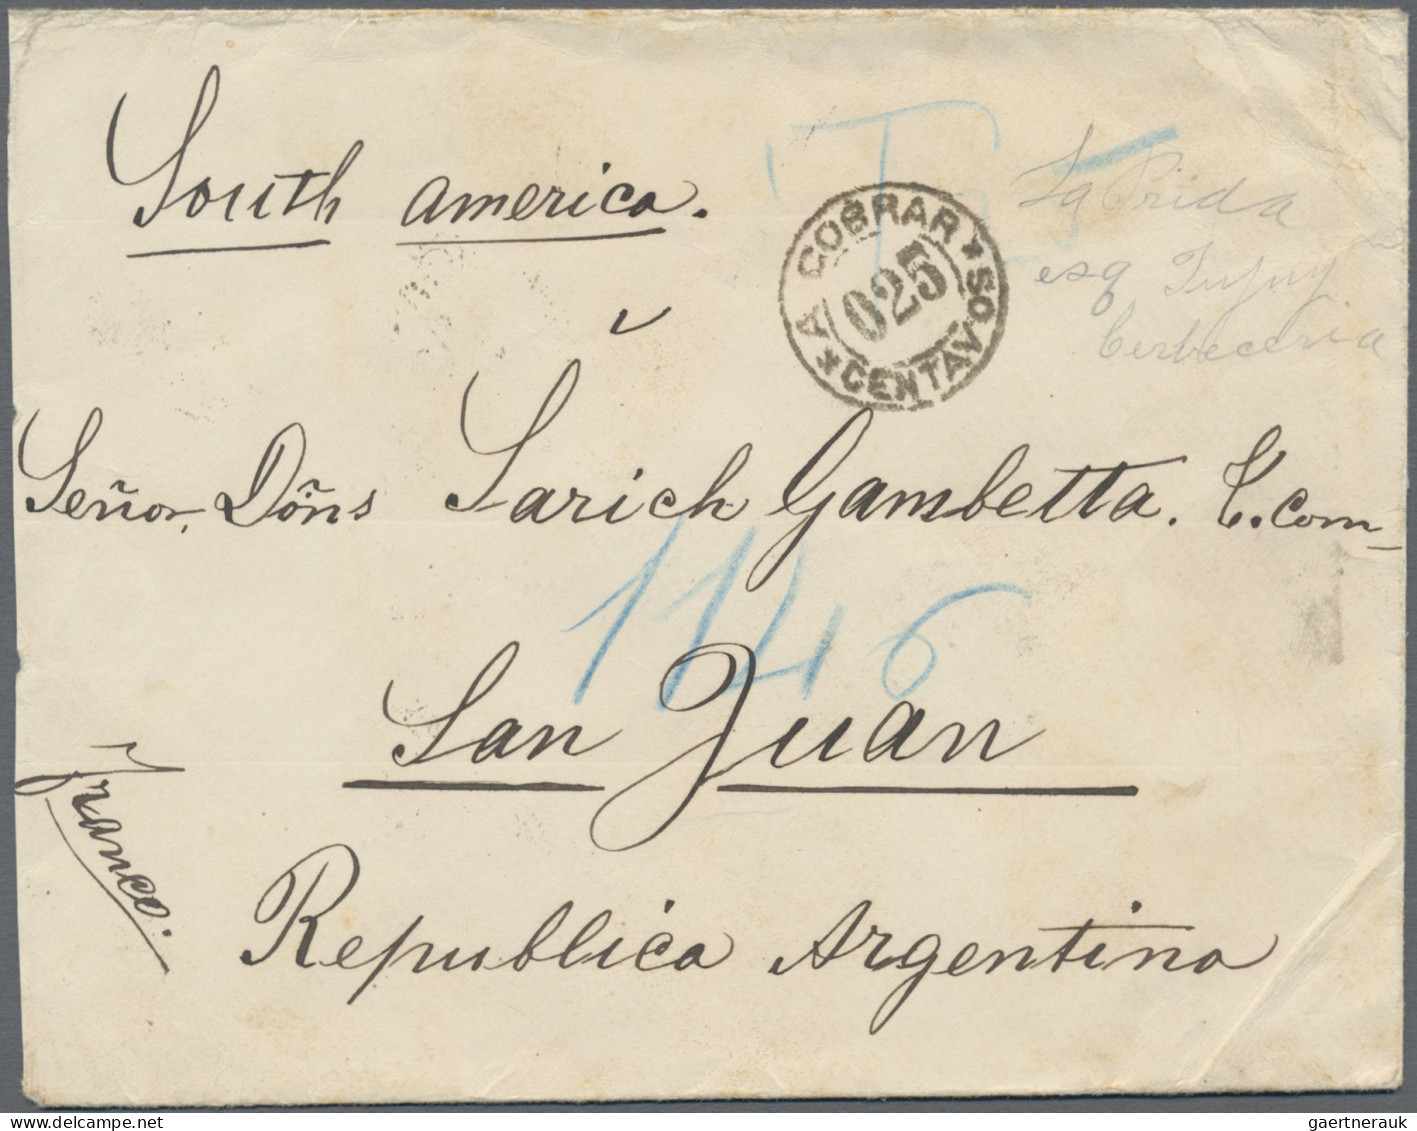 South America.
T 5
La Prida
esq Jujuy
Cerbeceria
A COBRAR * CENTAVOS *
025
Señor, Dôñs Sarich Gambetta. C. com
1146
San Juan
Franco.
Republica Argentina
gaertnerauk